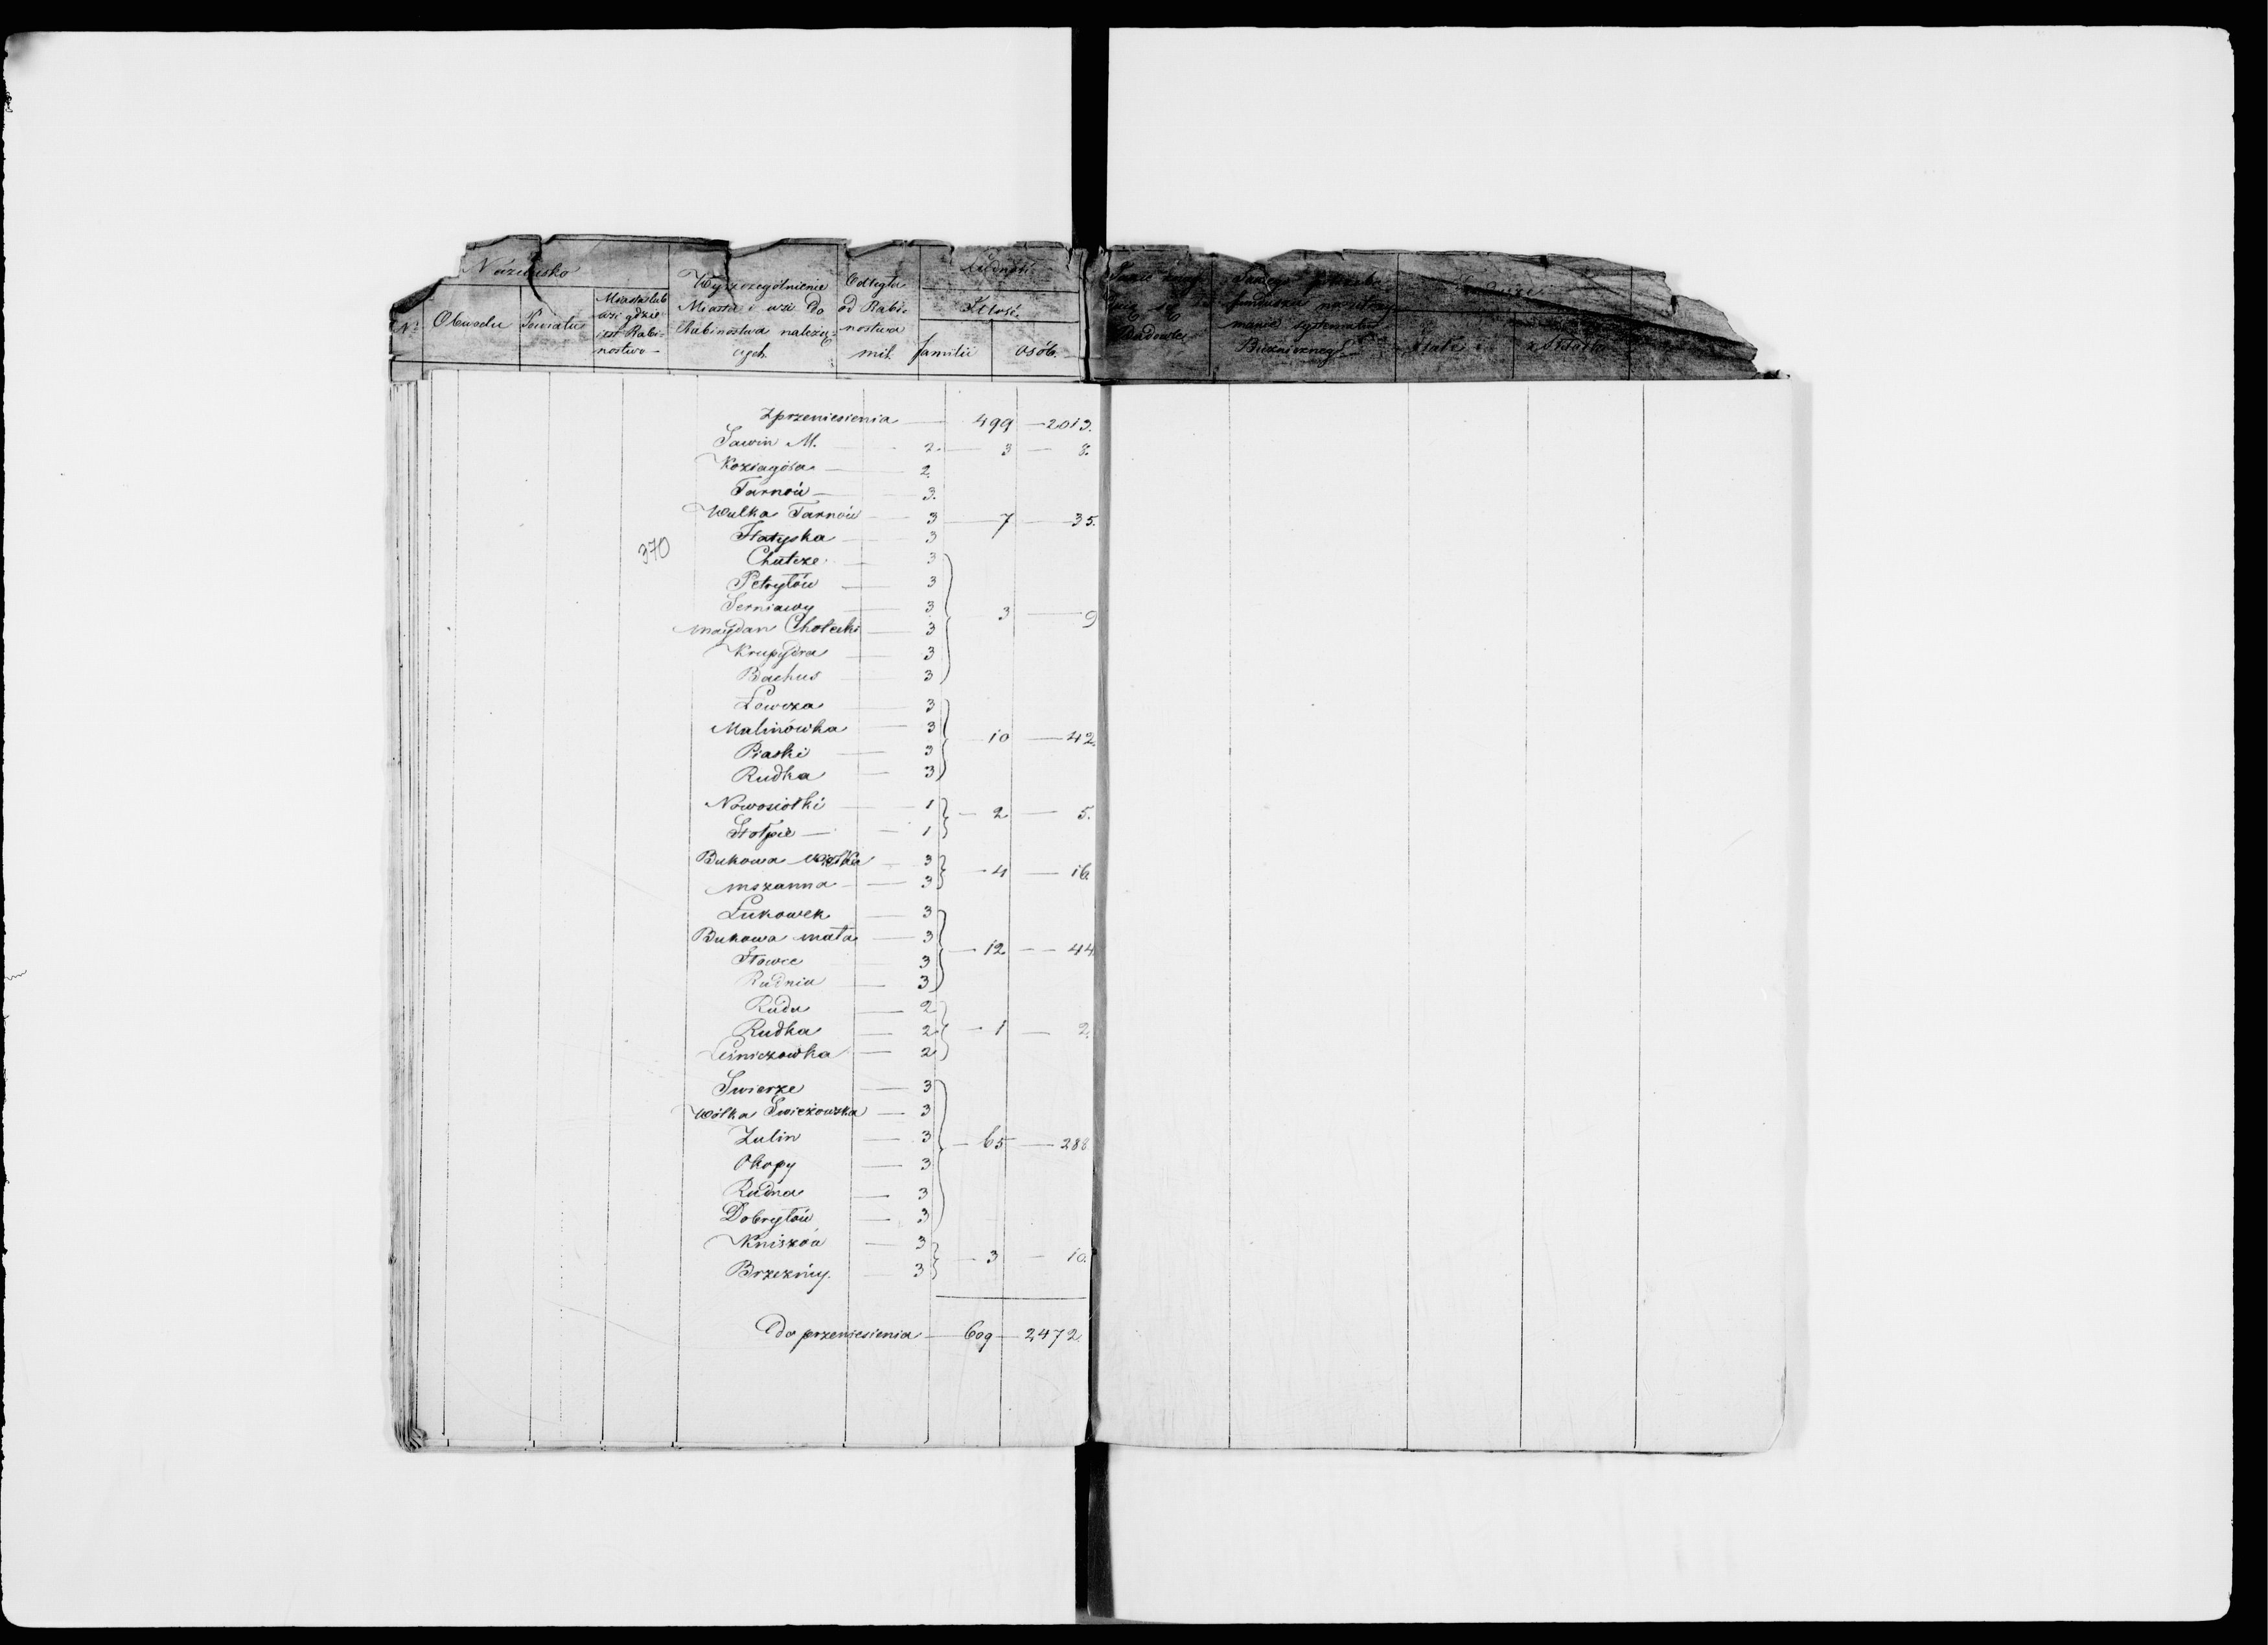 Nazwisko
Nr
Obwodu
Powiatu
Miasta lub
wsi gdzie
jest Rabi-
nostwo
Wyszczególnienie
Miasta i wsi do
Rabinostwa należą-
cych
Odległa
od Rabi-
nostwa
mil
Ludność
Ilość
familii
osób
Z przeniesienia — 499 — 2013.
Sawin M. — 2. — 3 — 8.
Koziagóra — 2.
Tarnów — 3.
Wulka Tarnów — 3 — 7 — 35.
Hatyska — 3
370
Chutcze — 3
Petryłów — 3
Serniawy — 3 — 3 — 9
Maydan Chołecki — 3
Krupydra — 3
Bachus — 3
Lowcza — 3
Malinówka — 3 — 10 — 42.
Piaski — 3
Rudka — 3
Nowosiołki — 1 — 2 — 5.
Stołpie — 1
Bukowa wielka — 3 — 4 — 16
Mszanna — 3
Lukowek — 3
Bukowa mała — 3 — 12 — 44
Stawce — 3
Rudnia — 3
Ruda — 2
Rudka — 2 — 1 — 2.
Leśniczowka — 2
Swierze — 3
Wólka Swierzowska — 3
Zulin — 3 — 65 — 288
Okopy — 3
Rudna — 3
Dobryłów — 3
Kniszoa — 3 — 3 — 10.
Brzezńy. — 3
Do przeniesienia — 609 — 2472.
funduszu na utrzy-
manie systematu
Bużnicznego